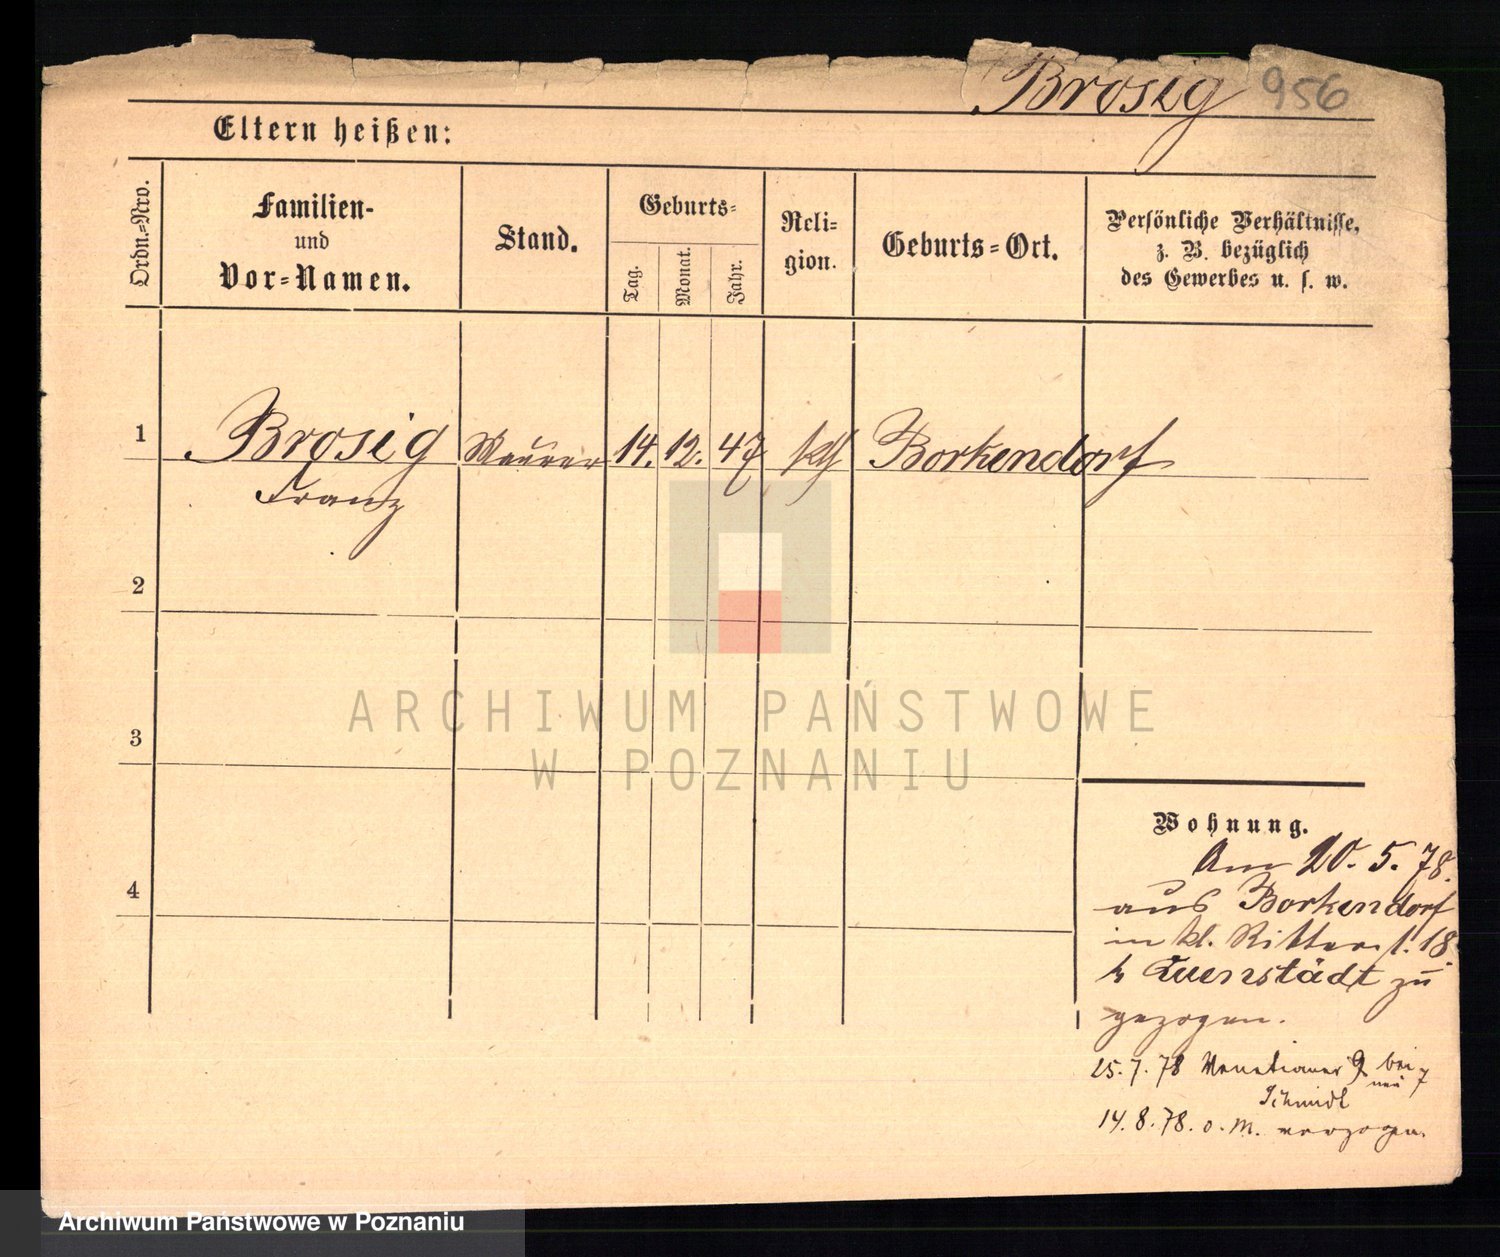 Brosig 956
Eltern heißen:
Ordn.=Nro.
Familien-
und
Vor=Namen.
Stand.
Geburts=
Tag.
Monat.
Jahr.
Reli=
gion.
Geburts=Ort.
Persönliche Verhältnisse,
z. B. bezüglich
des Gewerbes u. s. w.
1 Brosig Maurer 14. 12. 47 kth Borkendorf
Franz
2
3
4
Wohnung.
Am 20. 5. 78.
aus Borkendorf
in kl. Ritterst. 18.
b Quenstädt zu
gezogen.
25. 7. 78 Venetianer 9 bei
neu 7
Schmidt
14. 8. 78. o. M. verzogen.
ARCHIWUM PAŃSTWOWE
W POZNANIU
Archiwum Państwowe w Poznaniu